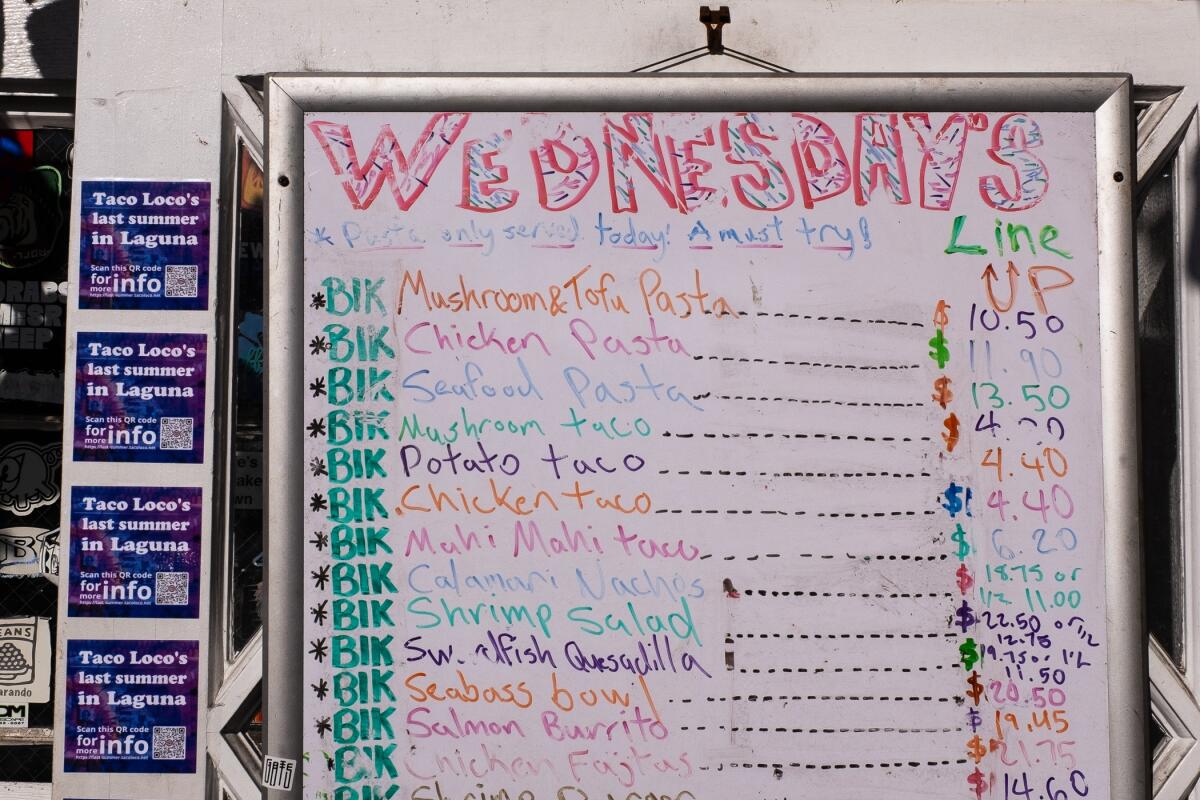 WEDNESDAY'S
* Pasta only served today! A must try!
Line
UP
*BIK Mushroom & Tofu Pasta $ 10.50
*BIK Chicken Pasta $ 11.90
*BIK Seafood Pasta $ 13.50
*BIK Mushroom taco $ 4.
*BIK Potato taco 4.40
*BIK Chicken taco $ 4.40
*BIK Mahi Mahi taco $ 6.20
*BIK Calamari Nachos $ 18.75 or
1/2 11.00
*BIK Shrimp Salad $ 22.50 or 1/2
12.75
*BIK Quesadilla $ 19.75 or 1/2
11.50
*BIK Seabass bowl $ 20.50
*BIK Salmon Burrito $ 19.45
BIK Chicken Fajtas $ 21.75
BIK Shrimp Burger $ 14.60
Taco Loco's
last summer
in Laguna
Scan this QR code
for more info
Taco Loco's
last summer
in Laguna
Scan this QR code
for more info
Taco Loco's
last summer
in Laguna
Scan this QR code
for more info
Taco Loco's
last summer
in Laguna
Scan this QR code
for more info
GATS